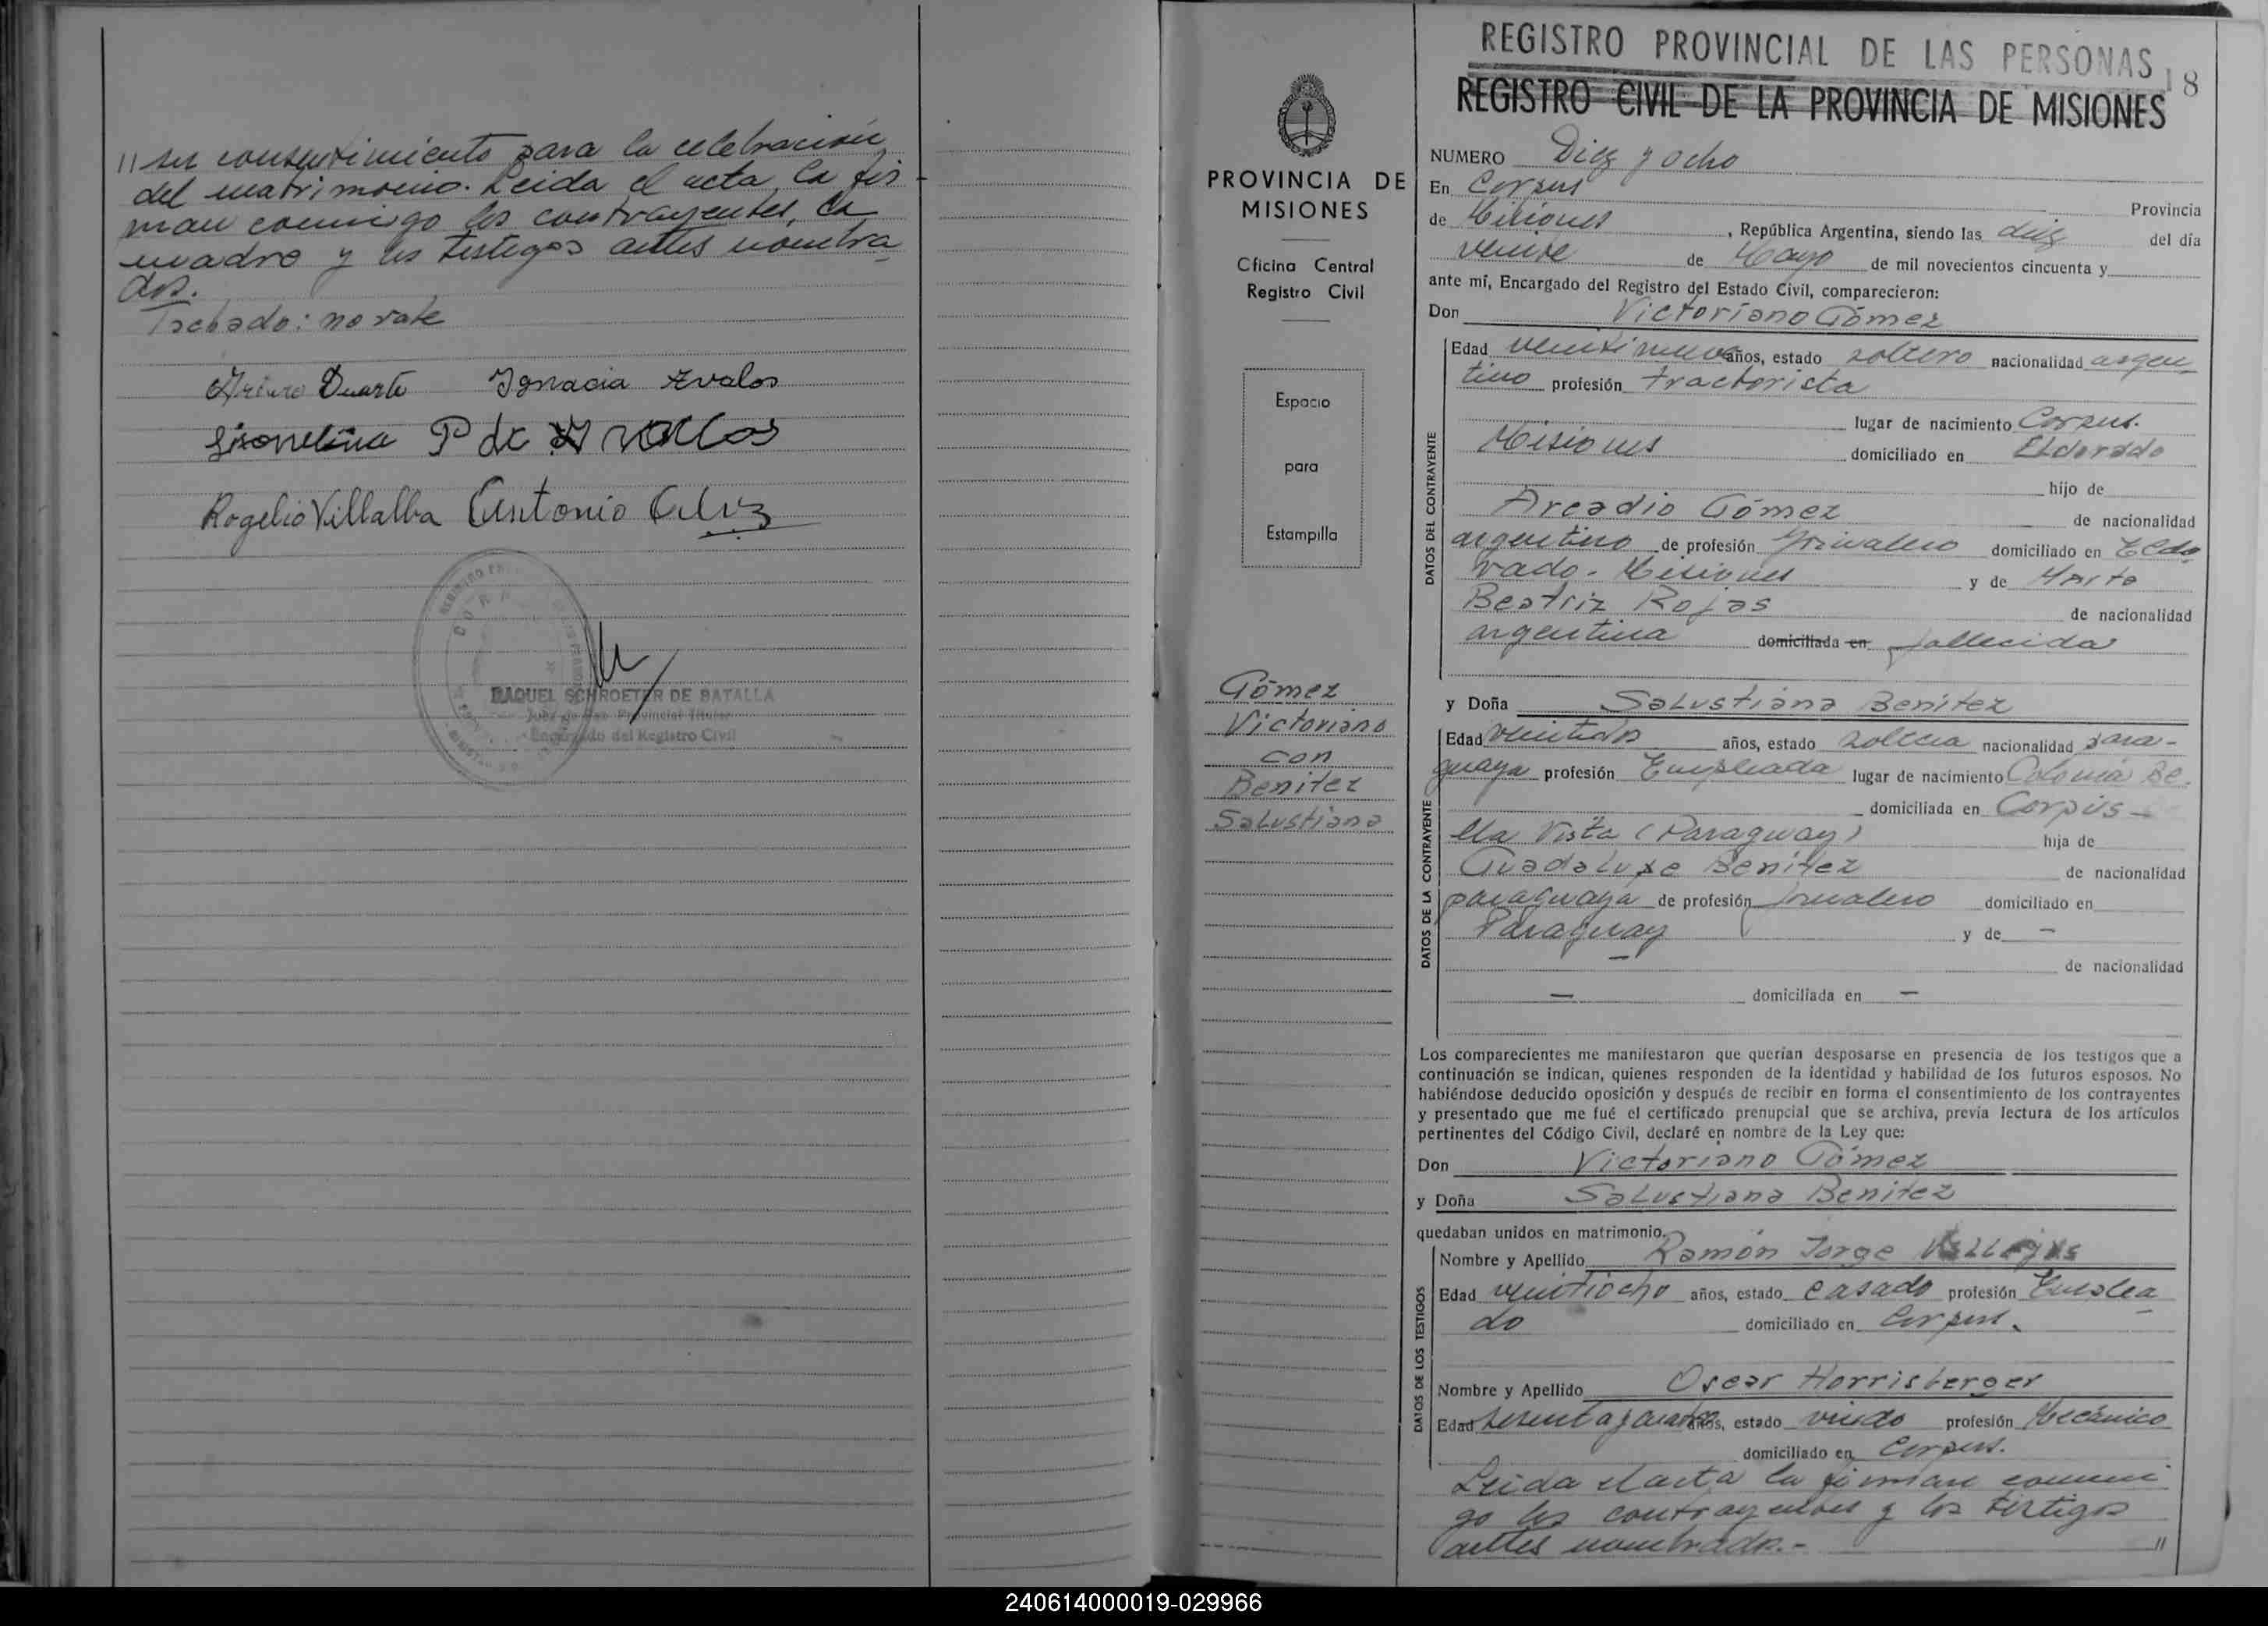 // su consentimiento para la celebración
del matrimonio. Leida el acta, la fir-
man conmigo los contrayentes, la
madre y los testigos antes nombra-
dos.
Tachado: no vale
Arturo Duarte Ignacia Avalos
P de Avalos
Rogelio Villalba Antonio
RAQUEL SCHROETER DE BATALLA
Juez de Paz Provincial Titular
Encargado del Registro Civil
PROVINCIA DE
MISIONES
Oficina Central
Registro Civil
Espacio
para
Estampilla
Gómez
Victoriano
con
Benitez
Salustiana
REGISTRO PROVINCIAL DE LAS PERSONAS
18
REGISTRO CIVIL DE LA PROVINCIA DE MISIONES
NUMERO Diez y ocho
En Corpus
Provincia
de Misiones, República Argentina, siendo las diez del día
veinte de Mayo de mil novecientos cincuenta y
ante mí, Encargado del Registro del Estado Civil, comparecieron:
Don Victoriano Gómez
DATOS DEL CONTRAYENTE
Edad veintinueve años, estado soltero nacionalidad argen-
tino profesión tractorista
lugar de nacimiento Corpus.
Misiones domiciliado en Eldorado
hijo de
Arcadio Gómez de nacionalidad
argentino de profesión jornalero domiciliado en Eldo-
rado. Misiones y de
Beatriz Rojas de nacionalidad
argentina domiciliada en fallecida
y Doña Salustiana Benítez
DATOS DE LA CONTRAYENTE
Edad veintidós años, estado soltera nacionalidad para-
guaya profesión Empleada lugar de nacimiento Colonia Be-
domiciliada en Corpus-
lla Vista (Paraguay) hija de
Guadalupe Benítez de nacionalidad
paraguaya de profesión jornalero domiciliado en
Paraguay y de —
de nacionalidad
— domiciliada en —
Los comparecientes me manifestaron que querían desposarse en presencia de los testigos que a
continuación se indican, quienes responden de la identidad y habilidad de los futuros esposos. No
habiéndose deducido oposición y después de recibir en forma el consentimiento de los contrayentes
y presentado que me fué el certificado prenupcial que se archiva, previa lectura de los artículos
pertinentes del Código Civil, declaré en nombre de la Ley que:
Don Victoriano Gómez
y Doña Salustiana Benitez
quedaban unidos en matrimonio.
DATOS DE LOS TESTIGOS
Nombre y Apellido Ramón Jorge
Edad veintiocho años, estado casado profesión Emplea-
do domiciliado en Corpus.
Nombre y Apellido Oscar Horrisberger
Edad sesenta y cuatro años, estado viudo profesión Mecánico
domiciliado en Corpus.
Leida el acta la firman conmi
go los contrayentes y los testigos
antes nombrados.- //
240614000019-029966